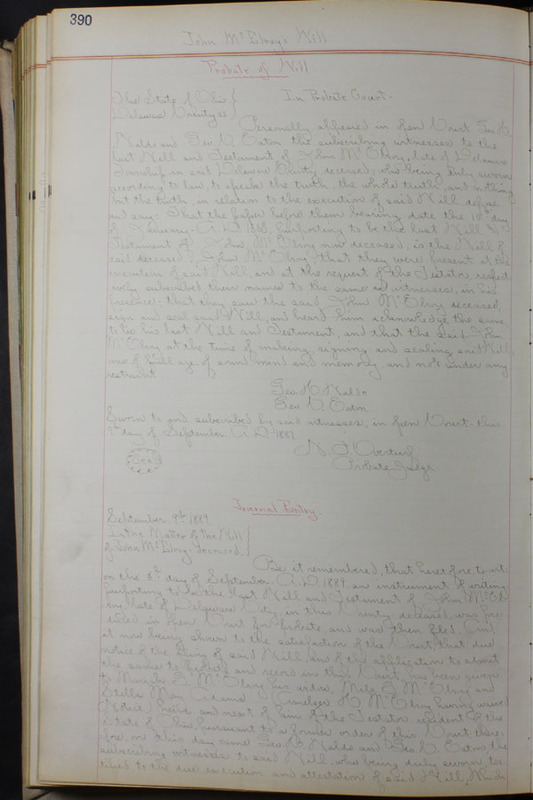 390
John McElroy's Will
Probate of Will
The State of Ohio } In Probate Court.
Delaware County ss
Personally appeared in open Court Geo. H.
Waldo and Geo. W. Eaton the subscribing witnesses to the
last Will and Testament of John McElroy, late of Delaware
Township in said Delaware County deceased; who being duly sworn
according to law, to speak the truth, the whole truth, and nothing
but the truth, in relation to the execution of said Will, depose
and say: That the paper before them bearing date the day
of January A.D. purporting to be the last Will &
Testament of John McElroy now deceased, is the Will of
said deceased John McElroy, that they were present at the
execution of said Will, and at the request of the Testator, respect-
ively subscribed their names to the same as witnesses, in his
presence; that they saw the said John McElroy deceased,
sign and seal said Will, and heard him acknowledge the same
to be his last Will and Testament, and that the said John
McElroy at the time of making, signing and sealing said Will,
was of full age, of sound mind and memory and not under any
restraint.
Geo. H. Waldo
Geo. W. Eaton
Sworn to and subscribed by said witnesses, in open Court this
day of September A.D. 1889
Seal
Probate Judge
Journal Entry.
September 9th 1889
In the Matter of the Will
of John McElroy deceased.
Be it remembered, that heretofore to wit:
on the day of September A.D. 1889 an instrument of writing
purporting to be the last Will and Testament of John McEl-
roy late of Delaware City, in this County, deceased, was pro-
duced in open Court for probate, and was then filed. And,
it now being shown to the satisfaction of the Court, that due
notice of the filing of said Will, and of the application to admit
the same to probate and record in this Court, has been given
to McElroy, his widow, McElroy and
Stella May Adams McElroy having waived
notice, heirs and next of kin of the Testator resident of the
State of Ohio, pursuant to a former order of this Court there-
fore, on this day came Geo. H. Waldo and Geo. W. Eaton, the
subscribing witnesses to said Will, who being duly sworn, tes-
tified to the due execution and attestation of said Will, which